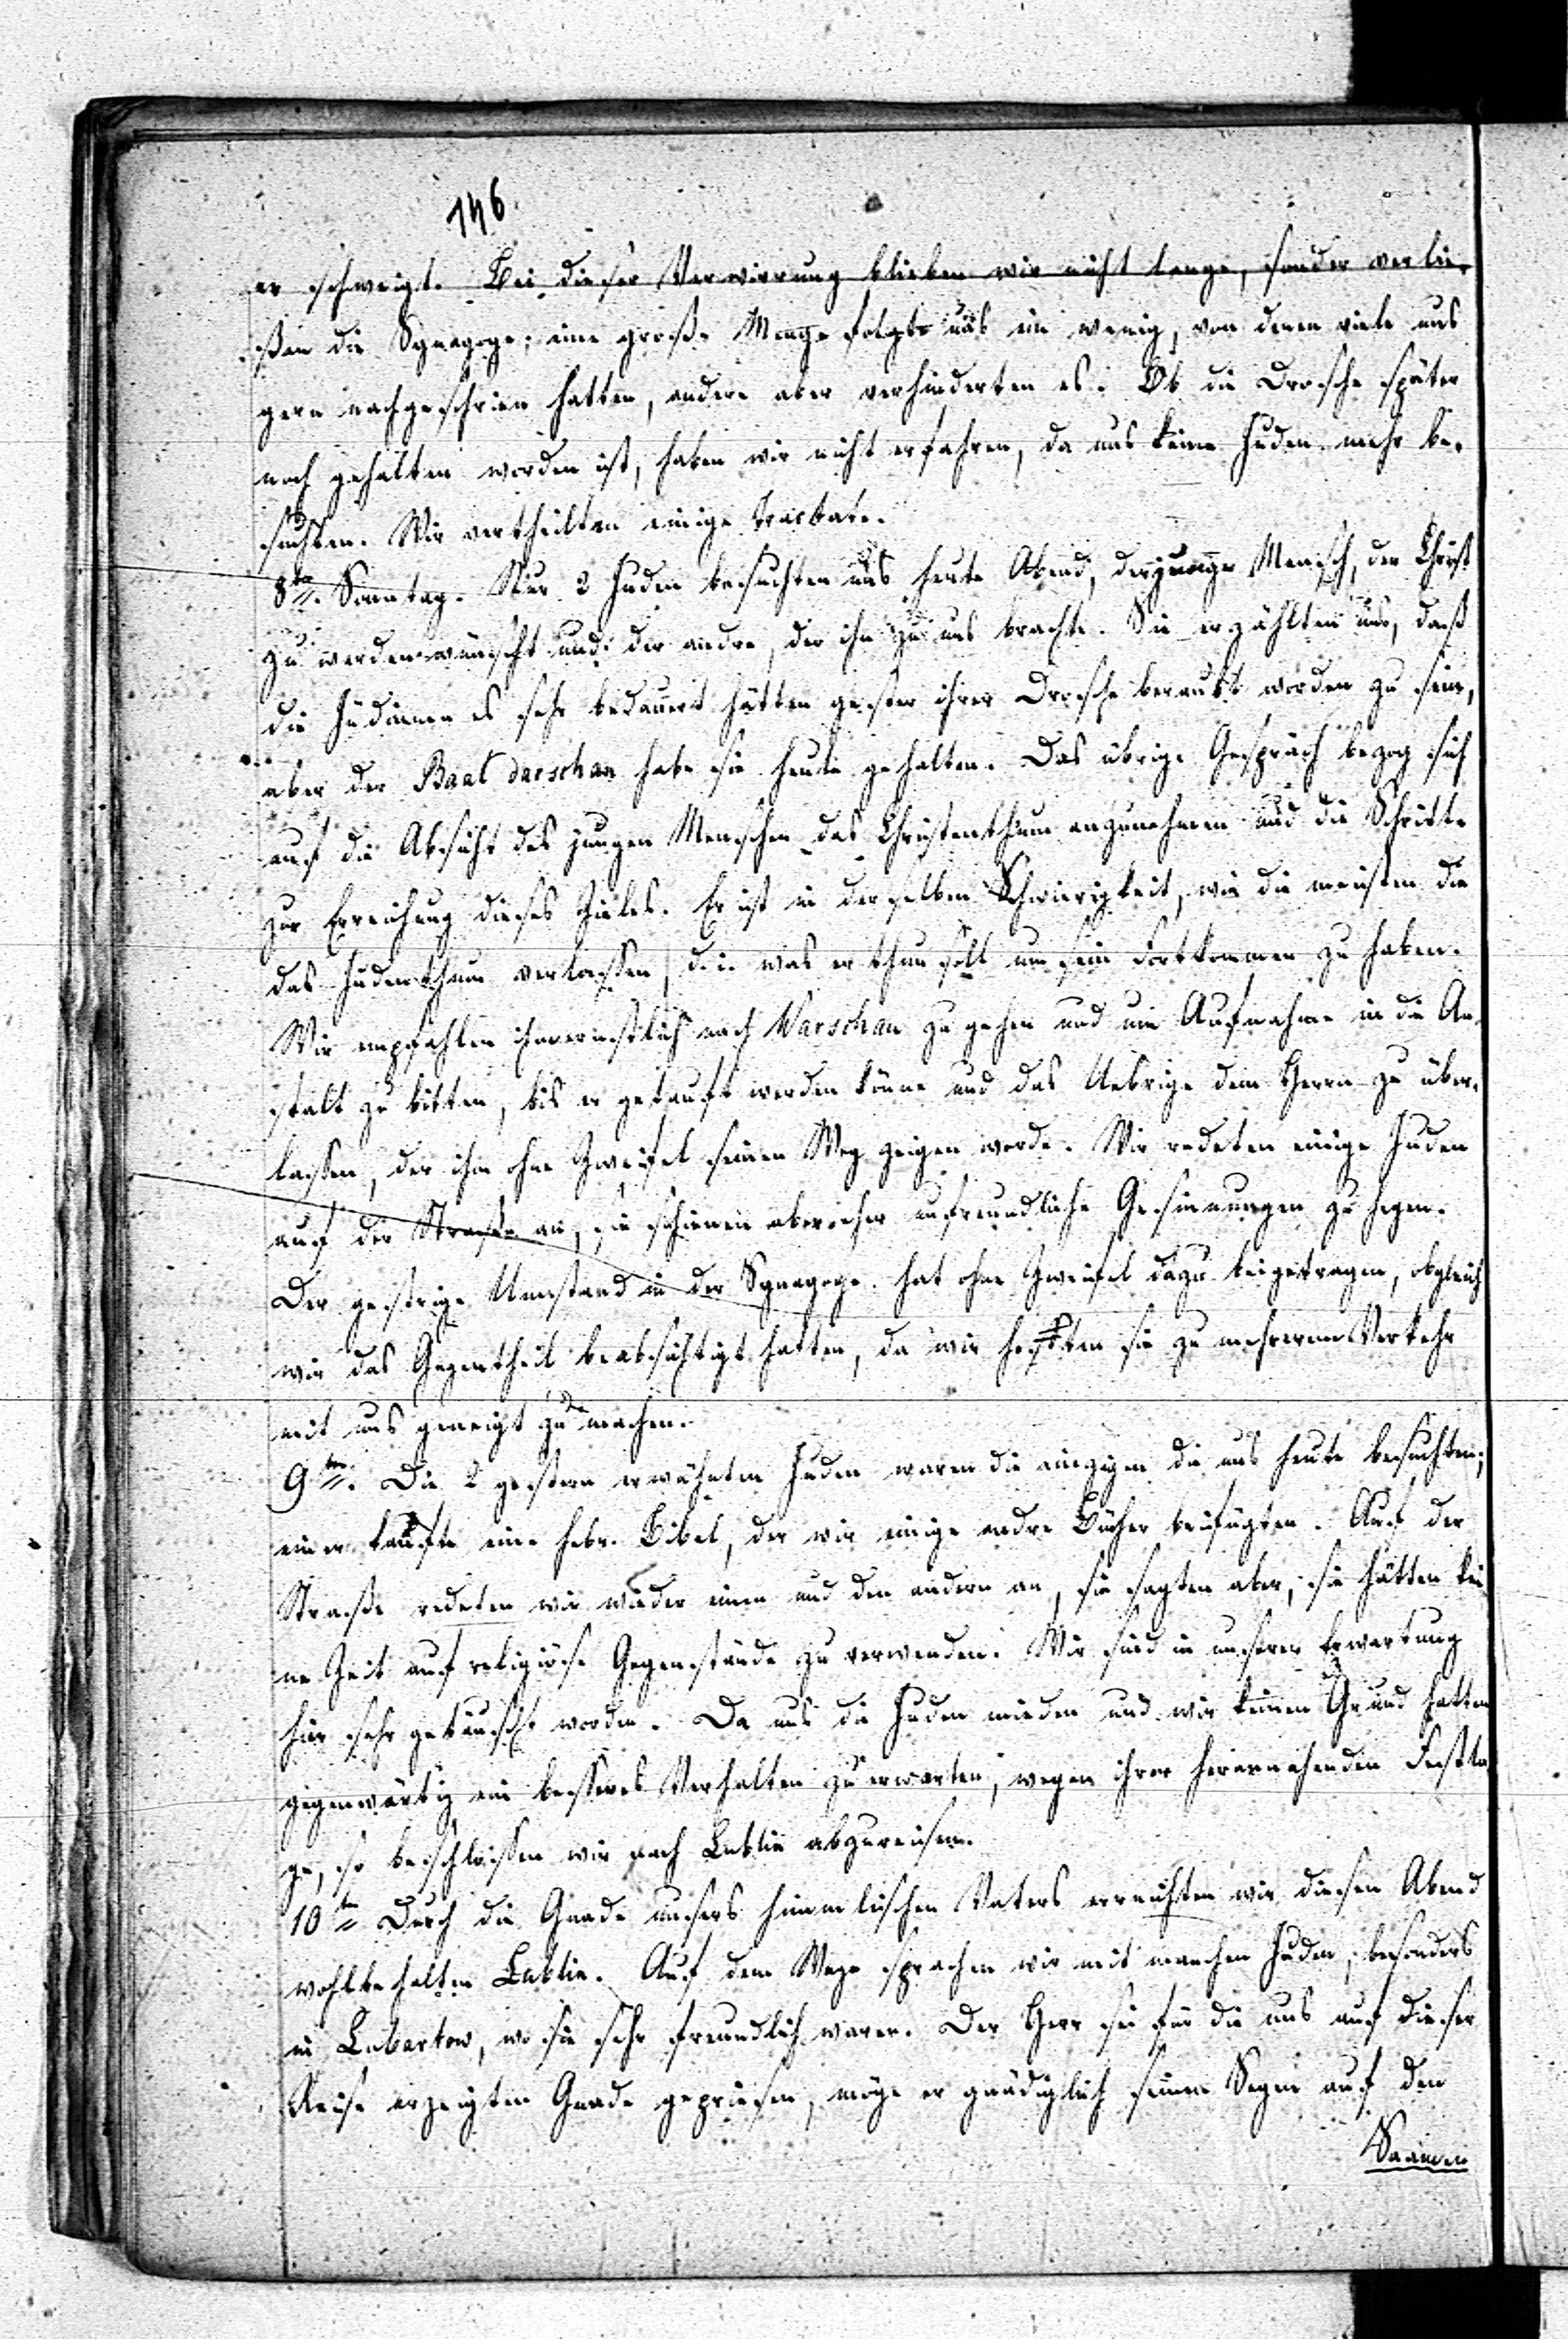 146.
er schweigt. Bei dieser Verwirrung blieben wir nicht lange, sonder verlie-
ßen die Synagoge; eine große Menge folgte uns ein wenig, von denen viele uns
gern nachgeschrien hatten, andere aber verhinderten es. Ob die Drosche später
noch gehalten worden ist, haben wir nicht erfahren, da uns keine Juden mehr be-
suchten. Wir vertheilten einige Tractate.
8ten. Sonntag. Nur 2 Juden besuchten uns heute Abend, der junge Mensch, der Christ
zu werden wünscht und der andre, der ihn zu uns brachte. Sie erzählten uns, daß
die Jüdinnen es sehr bedauert hätten gestern ihrer Drosche beraubt worden zu sein,
aber der Baal darschan habe sie heute gehalten. Das übrige Gespräch bezog sich
auf die Absicht des jungen Menschen das Christenthum anzunehmen und die Schritte
zur Erreichung dieses Zieles. Er ist in derselben Schwierigkeit, wie die meisten die
das Judenthum verlassen, d. i. was er thun soll um sein Fortkommen zu haben.
Wir empfahlen ihm ernstlich nach Warschau zu gehen und um Aufnahme in die An-
stalt zu bitten, bis er getauft werden könne und das Uebrige dem Herrn zu über-
lassen, der ihm ohne Zweifel seinen Weg zeigen werde. Wir redeten einige Juden
auf der Straße an, sie schienen aber eher unfreundliche Gesinnungen zu hegen.
Der gestrige Umstand in der Synagoge hat ohne Zweifel dazu beigetragen, obgleich
wir das Gegentheil beabsichtigt hatten, da wir hofften sie zu mehrerem Verkehr
mit uns geneigt zu machen.
9ten. Die 2 gestern erwähnten Juden waren die einzigen die uns heute besuchten;
einer kaufte eine hebr. Bibel, der wir einige andre Bücher beifügten. Auf der
Straße redeten wir wieder einen und den andern an, sie sagten aber, sie hätten kei-
ne Zeit auf religiöse Gegenstände zu verwenden. Wir sind in unserer Erwartung
hier sehr getäuscht worden. Da uns die Juden mieden und wir keinen Grund hatten
gegenwärtig ein besseres Verhalten zu erwarten, wegen ihrer herannahenden Festta-
ge, so beschlossen wir nach Lublin abzureisen.
10ten Durch die Gnade unsers himmlischen Vaters erreichten wir diesen Abend
wohlbehalten Lublin. Auf dem Wege sprachen wir mit manchen Juden, besonders
in Lubartow, wo sie sehr freundlich waren. Der Herr sei für die uns auf dieser
Reise erzeigten Gnade gepriesen, möge er gnädiglich seinen Segen auf den
Saamen